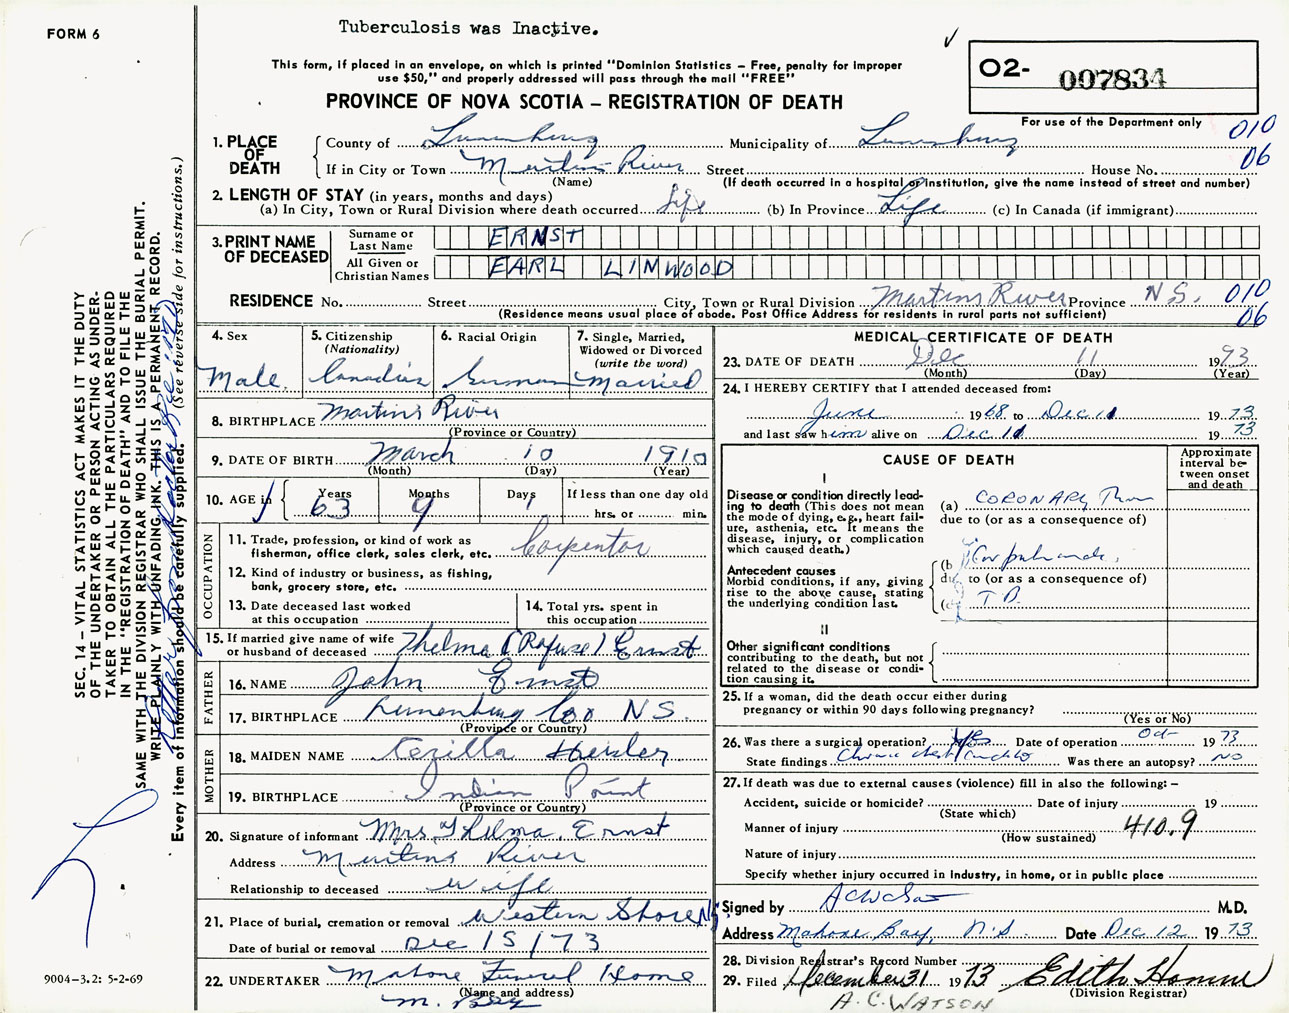 FORM 6
Tuberculosis was Inactive.
This form, if placed in an envelope, on which is printed "Dominion Statistics – Free, penalty for improper
use $50," and properly addressed will pass through the mail "FREE"
PROVINCE OF NOVA SCOTIA – REGISTRATION OF DEATH
O2- 007834
For use of the Department only
010
06
1. PLACE OF DEATH
County of Lunenburg Municipality of Lunenburg
If in City or Town Martins River Street House No.
(Name) (If death occurred in a hospital or institution, give the name instead of street and number)
2. LENGTH OF STAY (in years, months and days)
(a) In City, Town or Rural Division where death occurred Life (b) In Province Life (c) In Canada (if immigrant)
3. PRINT NAME OF DECEASED
Surname or Last Name ERNST
All Given or Christian Names EARL LINWOOD
RESIDENCE No. Street City, Town or Rural Division Martins River Province N.S. 010
(Residence means usual place of abode. Post Office Address for residents in rural parts not sufficient) 06
4. Sex
Male
5. Citizenship
(Nationality)
Canadian
6. Racial Origin
German
7. Single, Married,
Widowed or Divorced
(write the word)
Married
8. BIRTHPLACE Martins River
(Province or Country)
9. DATE OF BIRTH March 10 1910
(Month) (Day) (Year)
10. AGE in Years 63 Months 9 Days 1 If less than one day old
hrs. or min.
OCCUPATION
11. Trade, profession, or kind of work as
fisherman, office clerk, sales clerk, etc. Carpentor
12. Kind of industry or business, as fishing,
bank, grocery store, etc.
13. Date deceased last worked
at this occupation
14. Total yrs. spent in
this occupation
15. If married give name of wife
or husband of deceased Thelma (Rafuse) Ernst
FATHER
16. NAME John Ernst
17. BIRTHPLACE Lunenburg Co N.S.
(Province or Country)
MOTHER
18. MAIDEN NAME Hersler
19. BIRTHPLACE Indian Point
(Province or Country)
20. Signature of informant Mrs. Thelma Ernst
Address Martins River
Relationship to deceased wife
21. Place of burial, cremation or removal Western Shore NS
Date of burial or removal Dec 15/73
22. UNDERTAKER Mahone Funeral Home
(Name and address)
M. Bay
MEDICAL CERTIFICATE OF DEATH
23. DATE OF DEATH Dec 11 1973
(Month) (Day) (Year)
24. I HEREBY CERTIFY that I attended deceased from:
June 1968 to Dec 11 1973
and last saw him alive on Dec. 11 1973
CAUSE OF DEATH
Approximate
interval be-
tween onset
and death
I
Disease or condition directly lead-
ing to death (This does not
mean the mode of dying, e.g., heart fail-
ure, asthenia, etc. It means the
disease, injury, or complication
which caused death.)
(a) CORONARY
due to (or as a consequence of)
Antecedent causes
Morbid conditions, if any, giving
rise to the above cause, stating
the underlying condition last.
(b) Cor pulmonale
due to (or as a consequence of)
(c) T B.
II
Other significant conditions
contributing to the death, but not
related to the disease or condi-
tion causing it.
25. If a woman, did the death occur either during
pregnancy or within 90 days following pregnancy?
(Yes or No)
26. Was there a surgical operation? Date of operation Oct 1973
State findings Was there an autopsy? NO
27. If death was due to external causes (violence) fill in also the following: –
Accident, suicide or homicide? Date of injury 19
(State which)
Manner of injury 410.9
(How sustained)
Nature of injury
Specify whether injury occurred in industry, in home, or in public place
Signed by A C Watson M.D.
Address Mahone Bay, N.S. Date Dec 12 1973
28. Division Registrar's Record Number
29. Filed December 31 1973 Edith Homme
(Division Registrar)
A.C. WATSON
SEC. 14 – VITAL STATISTICS ACT MAKES IT THE DUTY
OF THE UNDERTAKER OR PERSON ACTING AS UNDER-
TAKER TO OBTAIN ALL THE PARTICULARS REQUIRED
IN THE "REGISTRATION OF DEATH" AND TO FILE THE
SAME WITH THE DIVISION REGISTRAR WHO SHALL ISSUE THE BURIAL PERMIT.
WRITE PLAINLY WITH UNFADING INK. THIS IS A PERMANENT RECORD.
Every item of information should be carefully supplied. (See reverse side for instructions.)
9004-3.2: 5-2-69